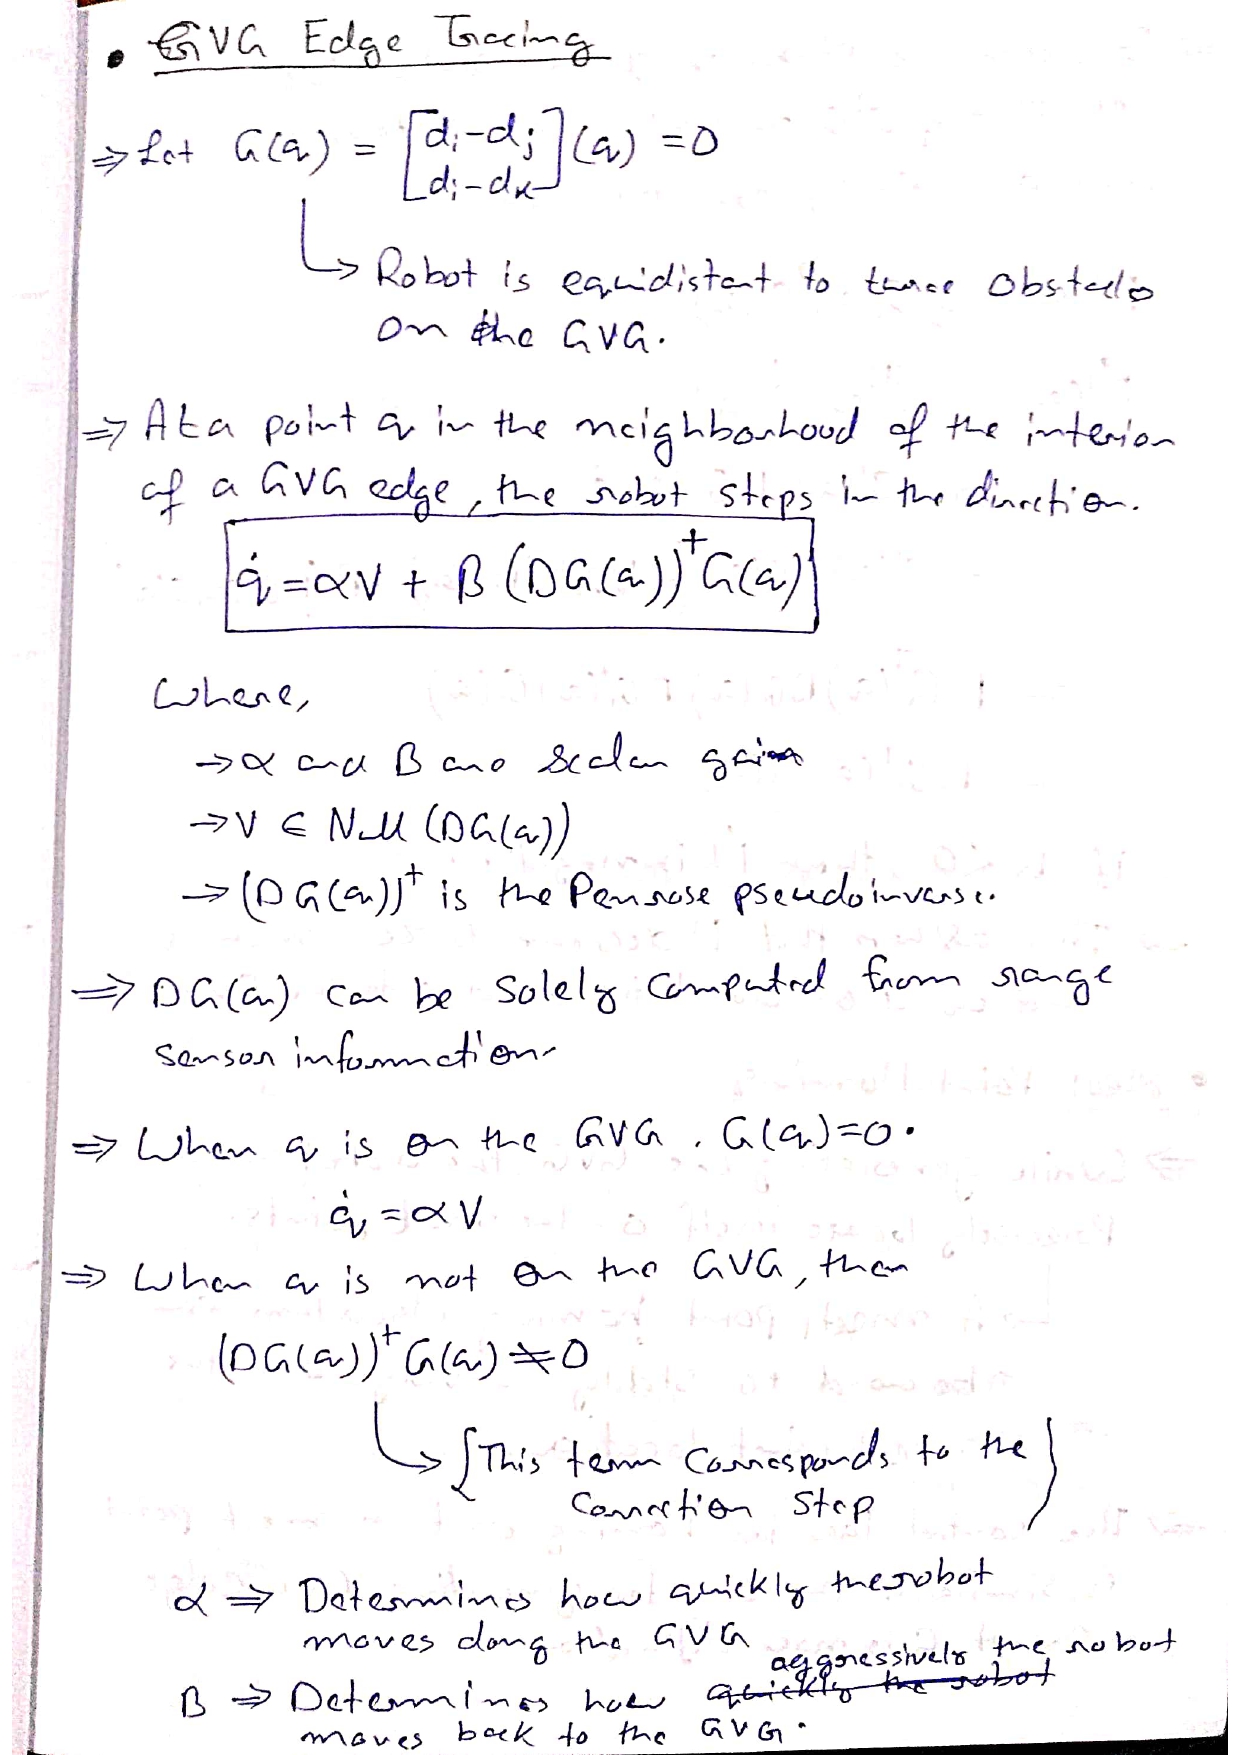 • GVG Edge Tracing
⇒ Let G(q) = [di-dj
di-dk] (q) = 0
↳ Robot is equidistant to three Obstacles
on the GVG.
⇒ At a point q in the neighborhood of the interior
of a GVG edge, the robot steps in the direction.
q̇ = αV + β (DG(q))⁺G(q)
Where,
→ α and β are Scalar gains
→ V ∈ Null (DG(q))
→ (DG(q))⁺ is the Penrose pseudoinverse.
⇒ DG(q) can be Solely Computed from range
Sensor information.
⇒ When q is on the GVG, G(q)=0.
q̇ = αV
⇒ When q is not on the GVG, then
(DG(q))⁺G(q) ≠ 0
↳ {This term Corresponds to the
Correction Step}
α ⇒ Determines how quickly the robot
moves along the GVG
β ⇒ Determines how aggressively the robot
moves back to the GVG.